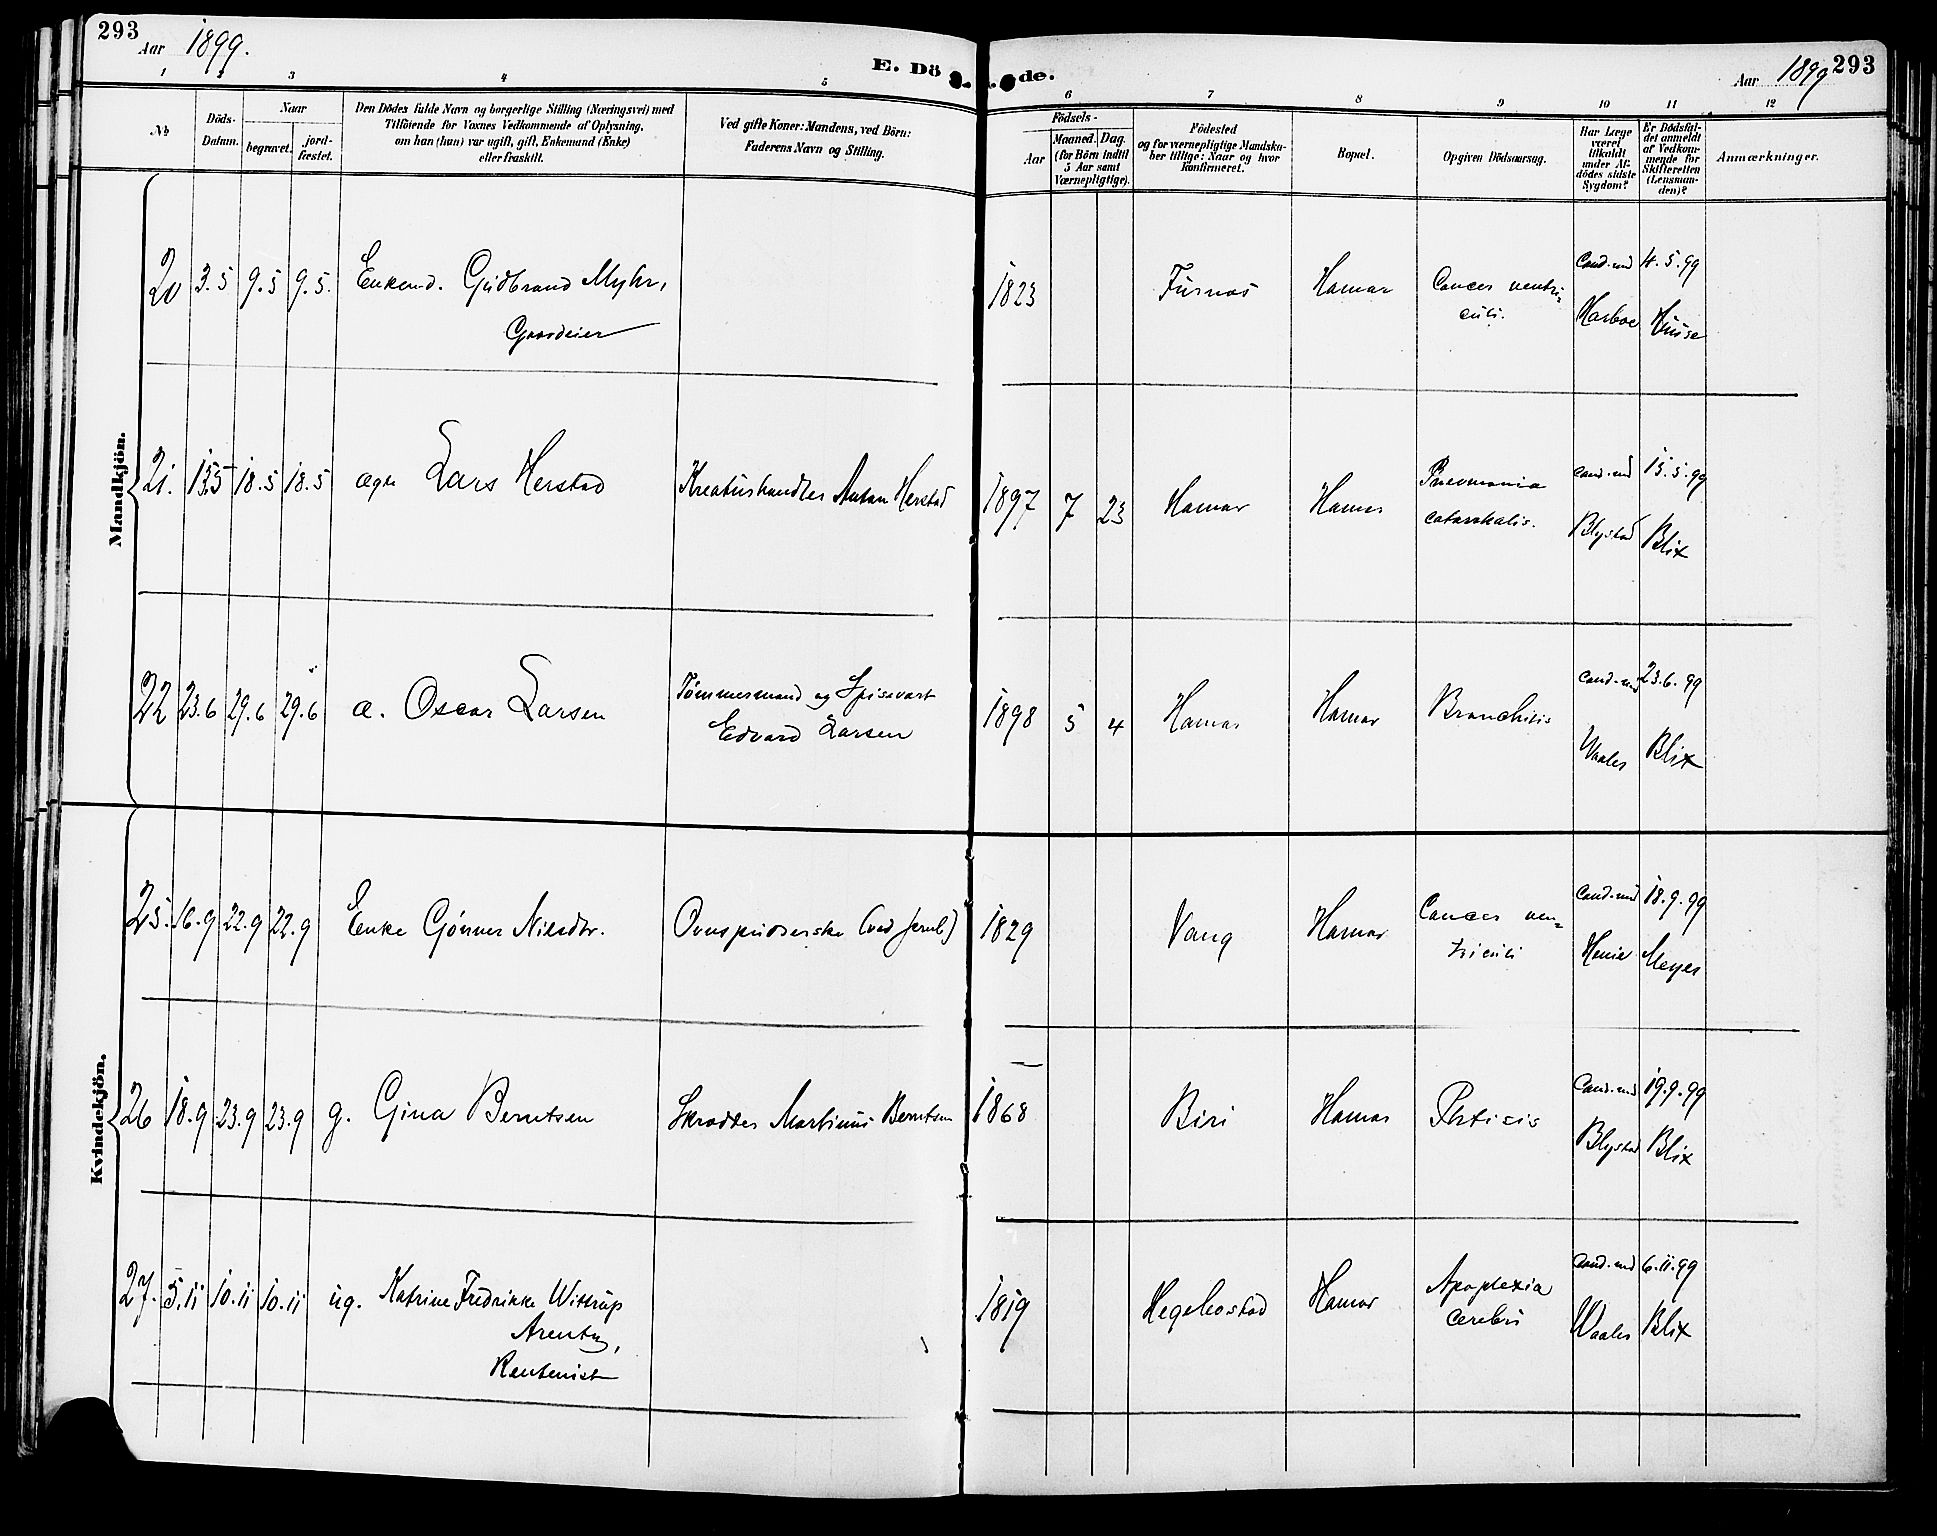 293
Aar 1899.
E. Dö
1 2 3 4 5
No
Döds-
Datum.
Naar
begravet.
jord-
fæstet.
Den Dödes fulde Navn og borgerlige Stilling (Næringsvei) med
Tilföiende for Voxnes Vedkommende af Oplysning,
om han (hun) var ugift, gift, Enkemand (Enke)
eller fraskilt.
Ved gifte Koner: Mandens, ved Börn:
Faderens Navn og Stilling.
de.
Aar 1899
293
6 7 8 9 10 11 12
Födsels-
Aar
Maaned. Dag.
(for Börn indtil
5 Aar samt
Værnepligtige).
Födested
og for værnepligtige Mandska-
ber tillige: Naar og hvor
Konfirmeret.
Bopæl.
Opgiven Dödsaarsag.
Har Læge
været
tilkaldt
under Af-
dödes sidste
Sygdom?
Er Dödsfal-
det anmeldt
af Vedkom-
mende for
Skifteretten
(Lensman-
den)?
Anmærkninger.
Mandkjön.
20 3.5 9.5 9.5. Enkemd. Gudbrand Myhr,
Gaardeier
1823 Furnes Hamar Cancer ventri-
culi.
Cand. med 4.5.99
Harboe Huuse
21. 15.5 18.5 18.5 ægte Lars Herstad Kreaturhandler Anton Herstad
1897 7 23 Hamar Hamar Pneumonia
catarrhalis.
cand. med 15.5.99
Blystad Blix
22 23.6 29.6 29.6 æ. Oscar Larsen Tømmermand og Spisevært
Edvard Larsen
1898 5 4 Hamar Hamar Bronchitis
cand. med 23.6.99
Waaler Blix
Kvindekjön.
25. 16.9 22.9 22.9 Enke Gjønner Nilsdtr. Ovnspudserske (ved Jernb)
1829 Vang Hamar Cancer ven-
triculi
Cand. med 18.9.99
Henie Meyer
26 18.9 23.9 23.9 g. Gina Berntsen Skrædder Martinus Berntsen
1868 Biri Hamar Phtisis
Cand. med 19.9.99
Blystad Blix
27. 5.11 10.11 10.11 ug. Katrine Fredrikke Wittrup
Arentz,
Rentenist
1819 Hegebostad Hamar Apoplexia
cerebri
Cand. med 6.11.99
Waaler Blix